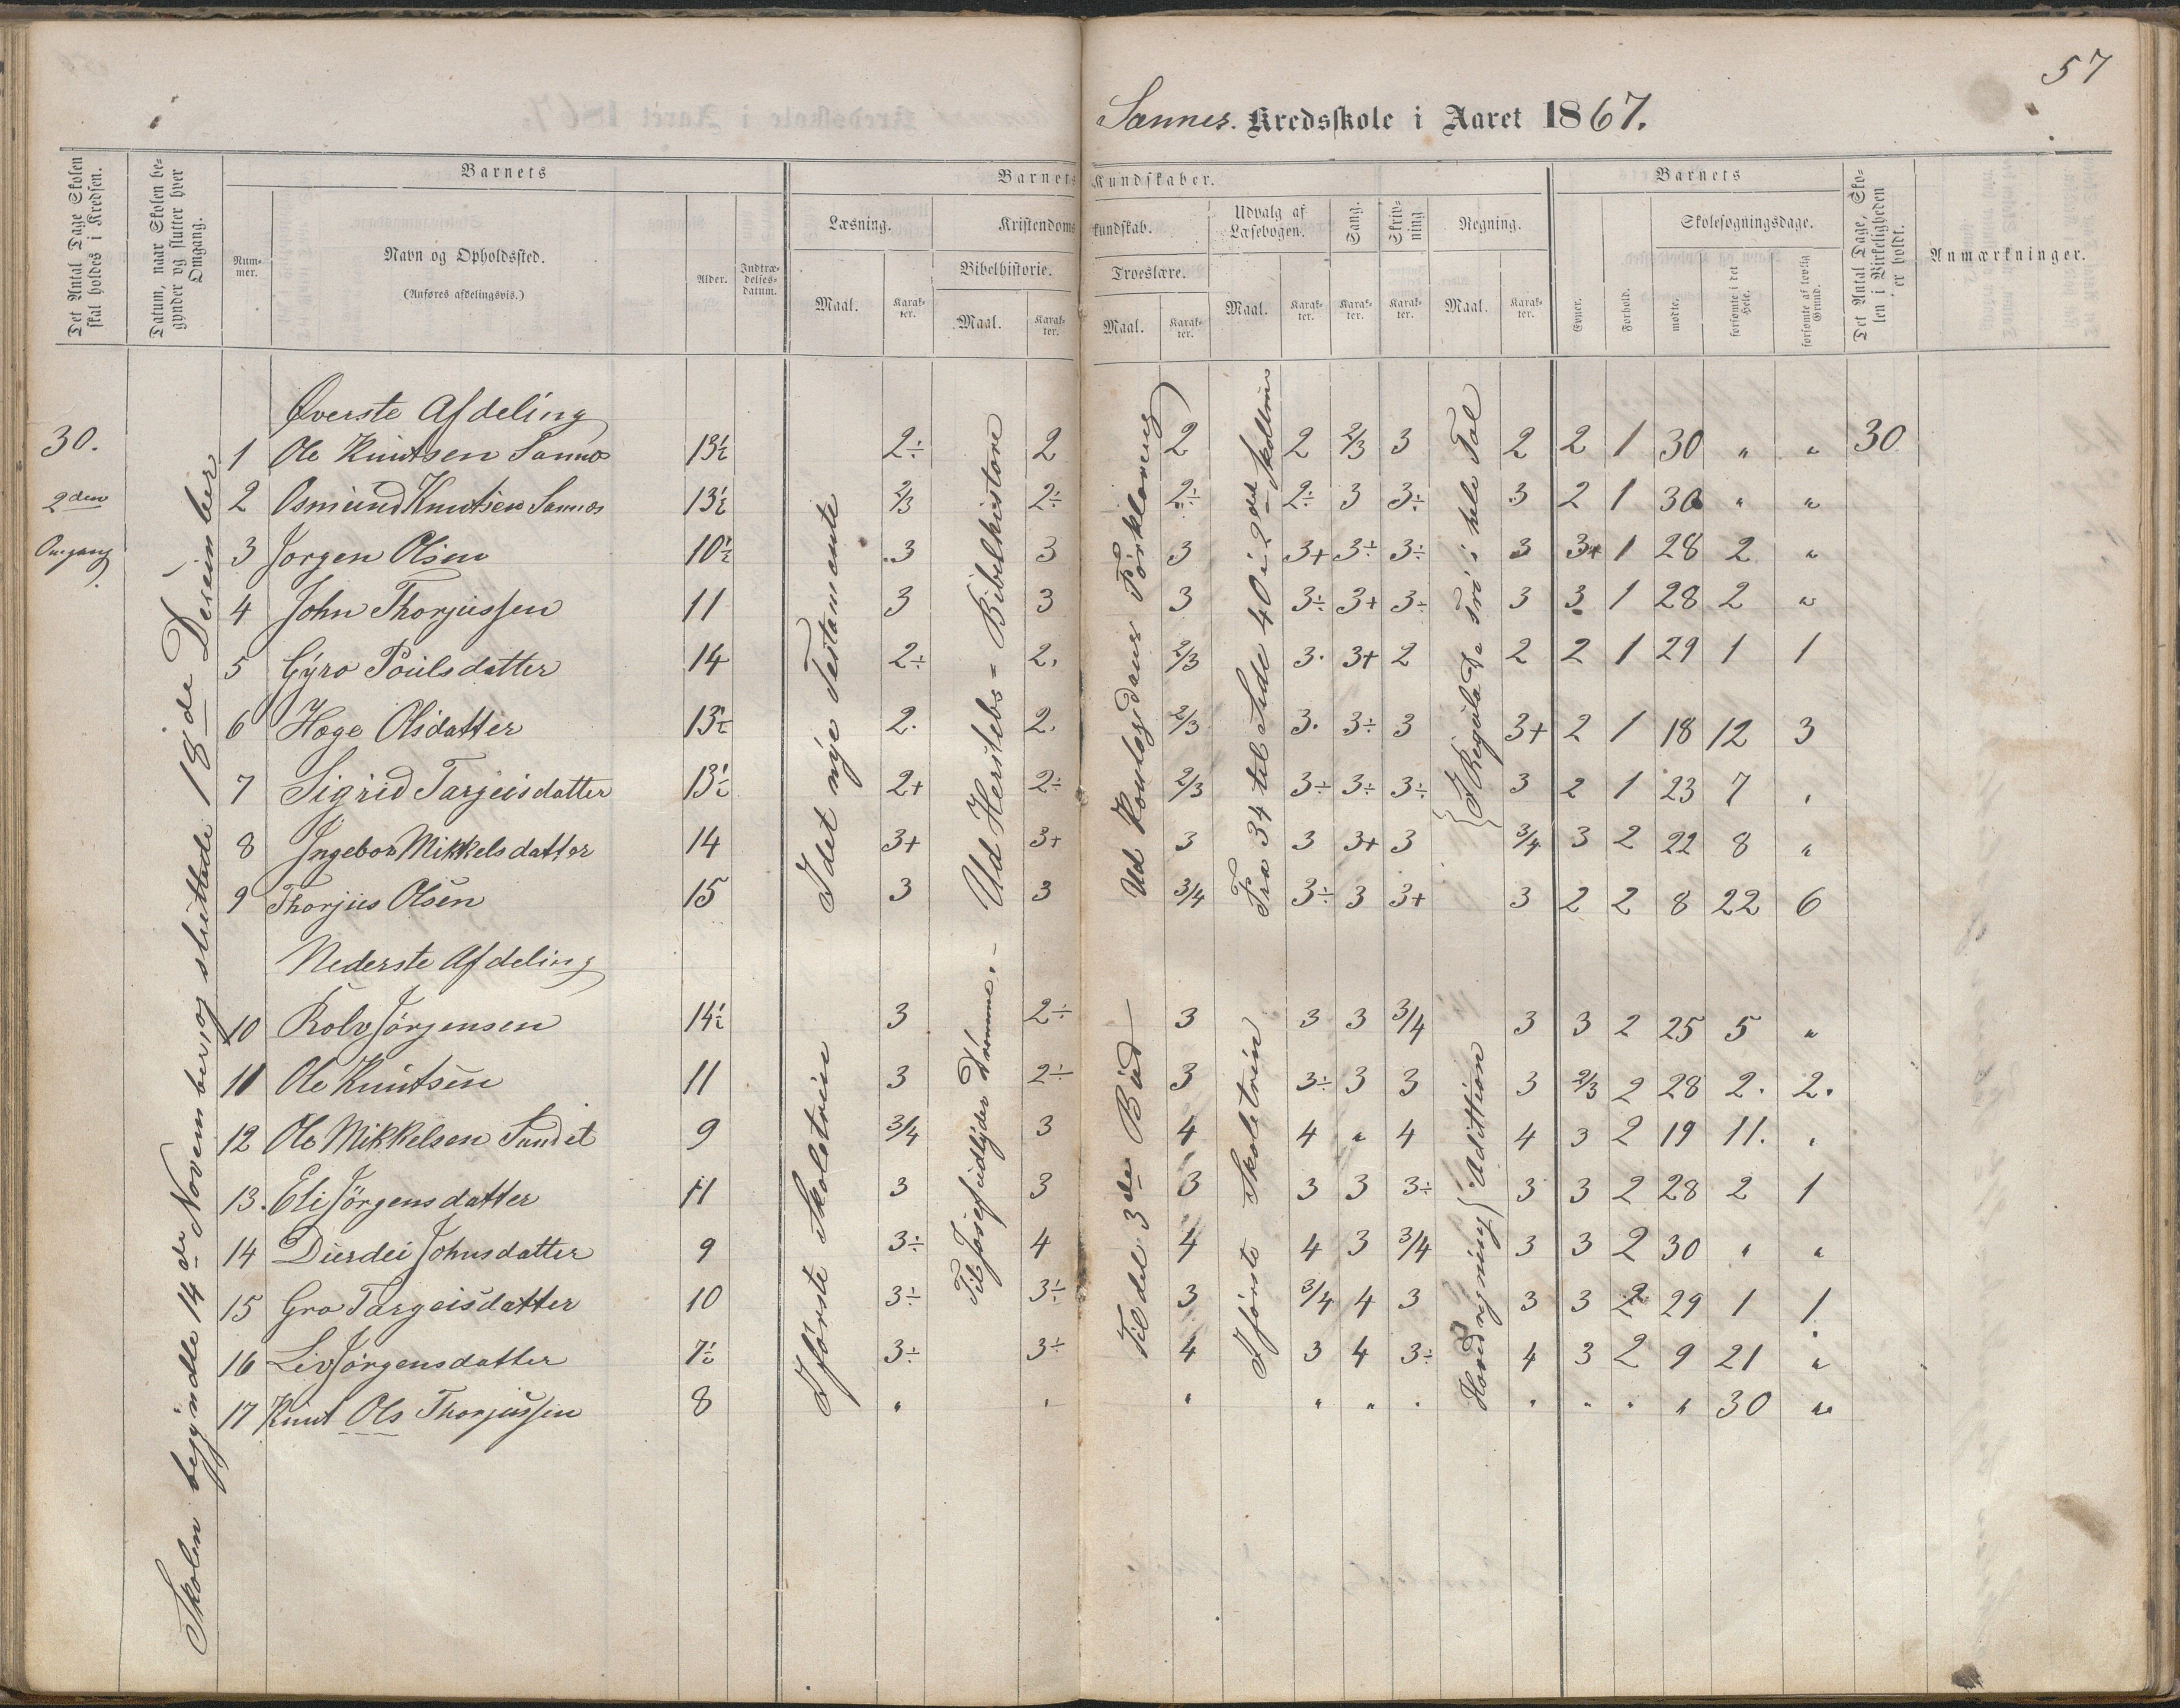 57
Sannes. Kredsskole i Aaret 1867.
Det Antal Dage Skolen skal holdes i Kredsen.
Datum, naar Skolen begynder og slutter hver Omgang.
Barnets
Nummer.
Navn og Opholdssted.
(Anføres afdelingsvis.)
Alder.
Indtrædelses-datum.
Barnets Kundskaber.
Læsning.
Maal.
Karakter.
Kristendomskundskab.
Bibelhistorie.
Maal.
Karakter.
Troeslære.
Maal.
Karakter.
Udvalg af Læsebogen.
Maal.
Karakter.
Sang.
Karakter.
Skrivning
Karakter.
Regning.
Maal.
Karakter.
Barnets
Evner.
Forhold.
Skolesøgningsdage.
mødte.
forsømte i det Hele.
forsømte af lovlig Grund.
Det Antal Dage, Skolen i Virkeligheden er holdt.
Anmærkninger.
30.
2den
Omgang
Skolen begyndte 14de November, og sluttede 18de Desember
Øverste Afdeling
1 Ole Knutsen Sannes 13½ 2÷ 2 2 2 2/3 3 2 2 1 30 " " 30
2 Osmund Knutsen Sannes 13½ 2/3 2÷ 2÷ 2÷ 3 3÷ 3 2 1 30 " "
3 Jorgen Olsen 10½ 3 3 3 3+ 3÷ 3÷ 3 3+ 1 28 2 "
4 John Thorjussen 11 3 3 3 3÷ 3+ 3÷ 3 3 1 28 2 "
5 Gyro Poulsdatter 14 2÷ 2. 2/3 3. 3+ 2 2 2 1 29 1 1
6 Hæge Olsdatter 13½ 2. 2. 2/3 3. 3÷ 3 3+ 2 1 18 12 3
7 Sigrid Tarjeisdatter 13½ 2+ 2÷ 2/3 3÷ 3÷ 3÷ 3 2 1 23 7 "
8 Ingebor Mikkelsdatter 14 3+ 3+ 3 3 3+ 3 3/4 3 2 22 8 "
9 Thorjus Olsen 15 3 3 3/4 3÷ 3 3+ 3 2 2 8 22 6
I det nye Testamente
Ud Herslebs = Bibelhistorie
Ud Pontopidans Forklaring
Fra 34 til Side 40 i 2det Skoletrin
I Regula De Tri i hele Tal
Nederste Afdeling
10 Rolv Jörgensen 14½ 3 2÷ 3 3 3 3/4 3 3 2 25 5 "
11 Ole Knutsen 11 3 2÷ 3 3÷ 3 3 3 2/3 2 28 2. 2.
12 Ole Mikkelsen Sundet 9 3/4 3 4 4 " 4 4 3 2 19 11. "
13. Eli Jörgensdatter 11 3 3 3 3 3 3÷ 3 3 2 28 2 1
14 Durdei Johnsdatter 9 3÷ 4 4 4 3 3/4 3 3 2 30 " "
15 Gro Targeisdatter 10 3÷ 3÷ 3 3/4 4 3 3 3 2 29 1 1
16 Liv Jörgensdatter 7½ 3÷ 3÷ 4 3 4 3÷ 4 3 2 9 21 "
17 Knut Ols Thorjussen 8 " " " " " " " " " " 30 "
I förste Skoletrin
Til Josef udtyder Drömme.
Til det 3de Bud
I förste Skoletrin
Hovedregning { Adittion